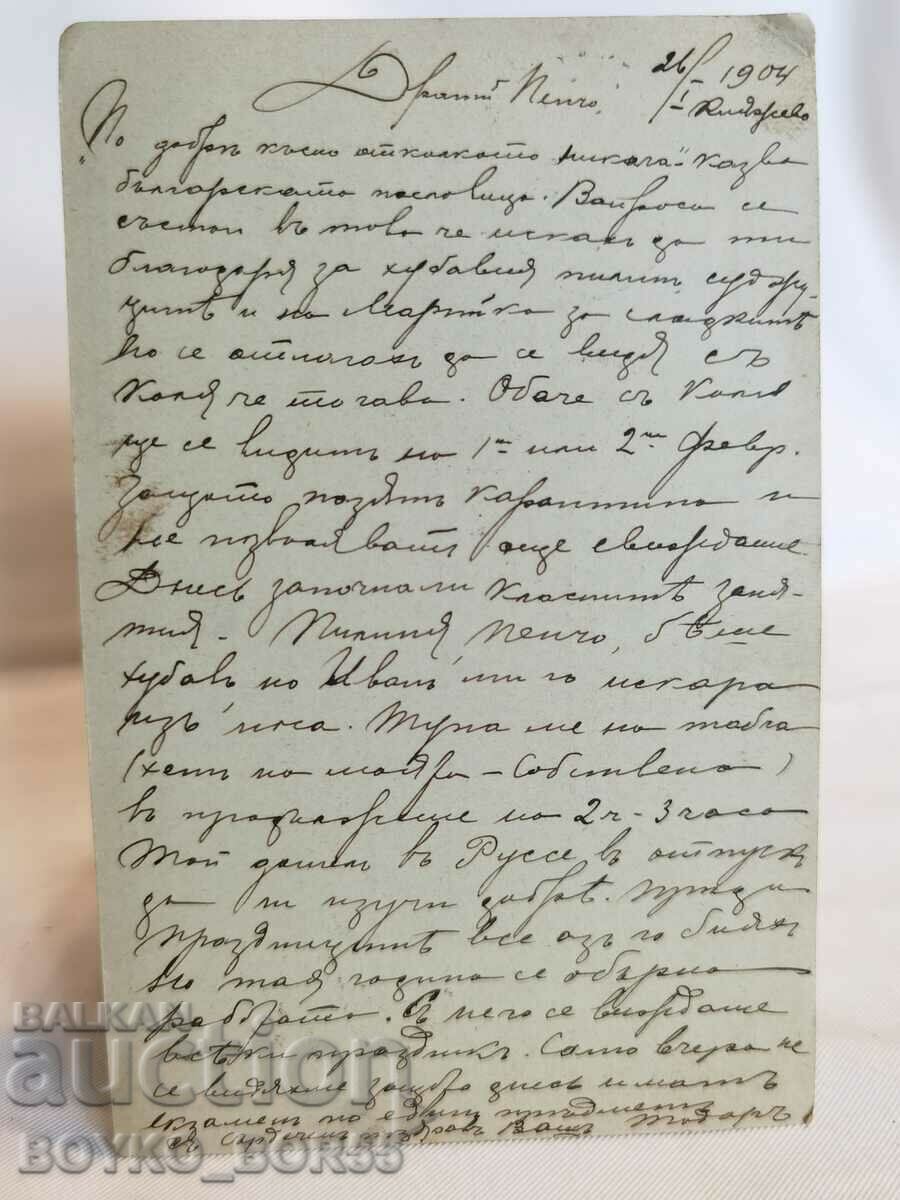 26/I 1904
Княжево
Драгий Пенчо,
"По добрѣ късно отколкото никога" казва
българската пословица. Въпроса се
състои въ това че исках да ти
благодаря за хубавия пилит
и на Марийка за сладкитѣ
но се отлагах да се видя съ
Коля че тогава. Обаче съ Коля
ще се видимъ на 1ий или 2ий Февр.
Защото пазятъ карантина и
не позволяватъ още свиждане.
Днесъ започнали класнитѣ заня-
тия. Пилиля Пенчо, бѣше
хубавъ но Иванъ ми го искара
изъ носа. Тупа ме на табла
(хемъ на моята - собствена)
въ продължение на 2ч - 3 часа
Той дошел въ Руссе въ отпускъ
да ги изучи добрѣ. Преди
празницитѣ все азъ го биях
но тая година се обърна
работата. Съ него се виждаме
всѣки праздникъ. Само вчера не
се видяхме защото днесъ иматъ
екзаменъ по единъ прѣдметъ
съ сърдеченъ поздравъ Вашъ Тодоръ
BALKAN
auction
BOYKO_BOR55